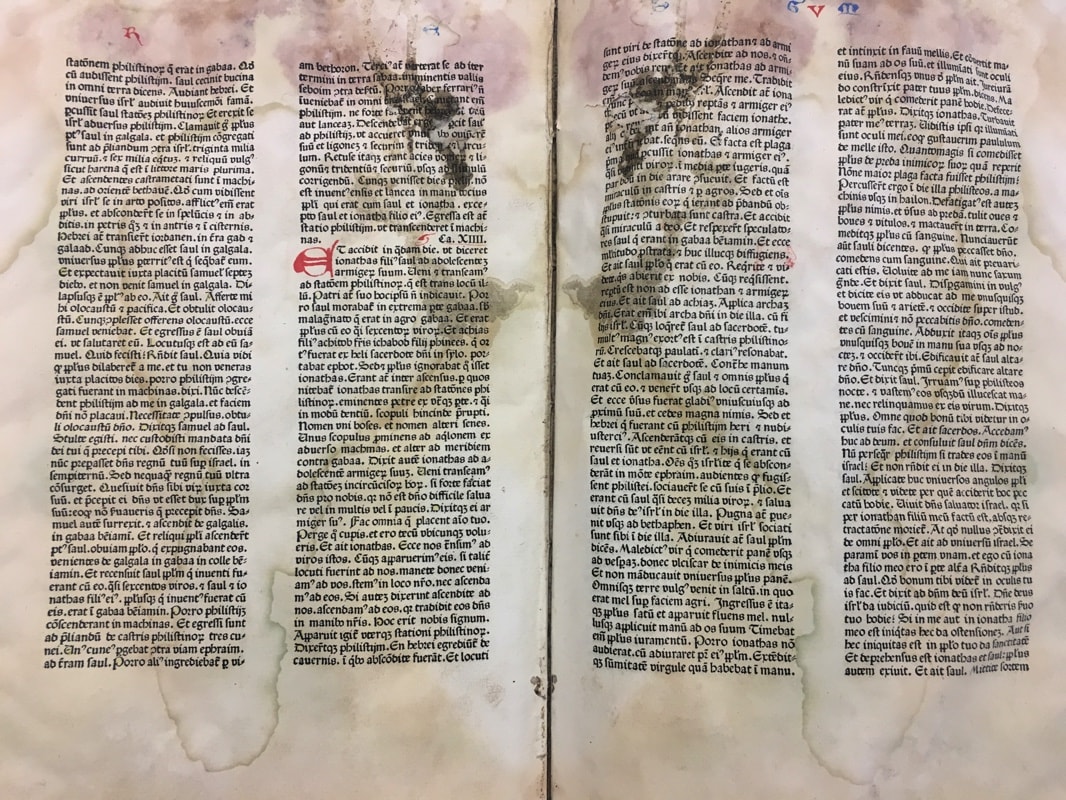 R
statōnem philistinoꝝ q̄ erat in gabaa. Qđ
cū audissent philistijm. saul cecinit bucina
in omni terra dicens. Audiant hebrei. Et
vniuersus isrł audiuit huiuscemōi famā.
ꝑcussit saul statōeȝ philistinoꝝ. Et erexit se
isrł aduersus philistijm. Clamauit ḡ pp̄lus
pt᷒ saul in galgala. et philistijm ɔgregati
sunt ad p̄liandum ɔtra isrł. triginta milia
curruū. ⁊ sex milia eq̄tuȝ. ⁊ reliquū vulg᷒
sicut harena q̄ est ī littore maris plurima.
Et ascendentes castrametati sunt ī machi-
nas. ad orientē bethauē. Qđ cum vidissent
viri isrł se in arto positos. afflict᷒ em̄ erat
pp̄lus. et absconderūt se in spelūcis ⁊ in ab-
ditis. in petris q̄ȝ ⁊ in antris ⁊ ī cisternis.
Hebrei at̄ transierūt iordanen. in t̄ra gad ⁊
galaad. Cunqȝ adhuc esset saul in galgala.
vniuersus pp̄lus ꝑterrit᷒ est q̄ seq̄bat᷑ eum.
Et expectauit iuxta placitū samuel septeȝ
dieb᷒. et non venit samuel in galgala. Di-
lapsusqȝ ē ppl᷒ ab eo. Ait ḡ saul. Afferte mi
hi olocaustū ⁊ pacifica. Et obtulit olocau-
stū. Cunqȝ ɔplesset offerens olocaustū. ecce
samuel veniebat. Et egressus ē saul obuiā
ei. vt salutaret eū. Locutusqȝ est ad eū sa-
muel. Quid fecisti? Rn̄dit saul. Quia vidi
ꝙ pp̄lus dilaberet᷑ a me. et tu non veneras
iuxta placitos dies. porro philistijm ɔgre-
gati fuerant in machinas. dixi. Nūc descē-
dent philistijm ad me in galgala. et faciem
dn̄i nō placaui. Necessitate ɔpulsus. obtu-
li olocaustū dn̄o. Dixitqȝ samuel ad saul.
Stulte egisti. nec custodisti mandata dn̄i
dei tui q̄ precepi tibi. Qđsi non fecisses. iaȝ
nūc preparasset dn̄s regnū tuū sup israel. in
sempiternū. Sed nequaqȝ regnū tuū vltra
cōsurget. Quesiuit dn̄s sibi viꝝ iuxta cor
suū. et p̄cepit ei dn̄s vt esset dux sup pp̄lm
suū: eoꝙ nō ẜuaueris q̄ precepit dn̄s. Sa-
muel aut̄ surrexit. ⁊ ascendit de galgalis.
in gabaa bēiami. Et reliqui ppl̄i ascenderūt
pt᷒ saul. obuiam ppl̄o. q̄ expugnabant eos.
venientes de galgala in gabaa in colle bē-
iamin. Et recensuit saul pp̄lm q̄ inuenti fu-
erant cū eo. q̄si sexcentos viros. ⁊ saul ⁊ io
nathas fili᷒ ei᷒. ppl̄usqȝ q̄ inuent᷒ fuerat cū
eis. erat ī gabaa bēiamin. Porro philistijȝ
cōscenderant in machinas. Et egressi sunt
ad p̄liandū de castris philistinoꝝ tres cu-
nei. Un᷒ cune᷒ ꝑgebat ɔtra viam ephraim.
ad t̄ram saul. Porro ali᷒ ingrediebat᷑ ꝑ vi-
am bethoron. Terci᷒ at̄ verterat se ad iter
termini in terra sabaa. imminentis vallis
seboim ɔtra desertū. Porro faber ferrari᷒ nō
inueniebat᷑ in omni
philistijm. ne forte
aut lanceaȝ. Descendebat
ad philistijȝ. vt accueret
suū et ligoneȝ ⁊ securim
lum. Retuse itaqȝ erant acies vomeꝝ ⁊ li-
gonū ⁊ tridentū ⁊ securiū. usqȝ ad
corrigendū. Cunqȝ venisset dies plij. nō
est inuent᷒ ensis et lancea in manu toci᷒
ppl̄i qui erat cum saul et ionatha. exce-
pto saul et ionatha filio ei᷒. Egressa est at̄
statio philistijm. vt transcenderet in machi-
nas. Ca. XIIII.
Et accidit in q̄dam die. vt diceret
ionathas fili᷒ saul ad adolescentē
armigeꝝ suum. Ueni ⁊ transeam᷒
ad statōem philistinoꝝ. q̄ est trans locū il-
lū. Patri at̄ suo hocip̄sū nō indicauit. Por
ro saul morabat᷑ in extrema pte gabaa. sb
malagᷓnato q̄ erat in agro gabaa. Et erat
ppl̄us cū eo q̄si sexcentoꝝ viroꝝ. Et achias
fili᷒ achitob fr̄is ichabod filij phinees. q̄ or
t᷒ fuerat ex heli sacerdote dn̄i in sylo. por-
tabat ephot. Sed ⁊ pp̄lus ignorabat q̄ isset
ionathas. Erant at̄ inter ascensus. ꝑ quos
nitebat᷑ ionathas transire ad statōneȝ phi
listinoꝝ. eminentes petre ex vtraqȝ pte. ⁊ q̄si
in modū dentiū. scopuli hincinde p̄rupti.
Nomen vni boses. et nomen alteri senes.
Unus scopulus ꝓminens ad aqlonem ex
aduerso machmas. et alter ad meridiem
contra gabaa. Dixit aut̄ ionathas ad a-
dolescentē armigeꝝ suuȝ. Ueni transeam᷒
ad statōeȝ incircūcisoꝝ hoꝝ. si forte faciat
dn̄s pro nobis. qꝛ nō est dn̄o difficile salua
re vel in multis vel ī paucis. Dixitqȝ ei ar
miger su᷒. Fac omnia q̄ placent aīo tuo.
Perge q̄ cupis. et ero tecū vbicunqȝ volu-
eris. Et ait ionathas. Ecce nos trāsim᷒ ad
viros istos. Cūqȝ apparuerim᷒ eis. si talit᷑
locuti fuerint ad nos. manete donec veni-
am᷒ ad vos. stem᷒ in loco nr̄o. nec ascenda
m᷒ ad eos. Si autez dixerint ascendite ad
nos. ascendam᷒ ad eos. qꝛ tradidit eos dn̄s
in manib᷒ nr̄is. Hoc erit nobis signum.
Apparuit igit᷑ vterqȝ stationi philistinoꝝ.
Dixerūtqȝ philistijm. En hebrei egrediūt᷑ de
cauernis. ī qb᷒ abscōdite fuerāt. Et locuti
V M
sunt viri de statōne ad ionathan ⁊ ad armi
geꝝ eius. dixerūtqȝ. Ascendite ad nos. ⁊ on̄-
dem᷒ vobis rem. Et ait ionathas ad armi-
geꝝ suū. Seqre me. Tradidit
Ascendit at̄ iona
reptās ⁊ armiger ei᷒
vidissent faciem ionathe.
ionathan. alios armiger
sequens eū. Et facta est plaga
ꝑcussit ionathas ⁊ armiger ei᷒.
viroꝝ. ī media pte iugeris. quā
par boū in die arare ɔsueuit. Et factū est
miraculū in castris ⁊ ꝑ agros. Sed et oīs
ppl̄us statōnis eoꝝ q̄ ierant ad p̄dandū ob-
stupuit: ⁊ ɔturbata sunt castra. Et accidit
q̄si miraculū a deo. Et respexerūt speculato-
res saul q̄ erant in gabaa bēiamin. Et ecce
mltitudo ꝓstrata. ⁊ huc illucqȝ diffugiens.
Et ait saul ppl̄o q̄ erat cū eo. Reqrite ⁊ vi-
dete q̄s abierit ex nobis. Cūqȝ reqsissent.
reptum est non ad esse ionathan ⁊ armigeꝝ
eius. Et ait saul ad achiaȝ. Applica archaȝ
dn̄i. Erat em̄ ibi archa dn̄i in die illa. cū fi
lijs isrł. Cūqȝ loqret᷑ saul ad sacerdotē. tu-
mult᷒ magn᷒ exort᷒ est ī castris philistino-
rū. Crescebatqȝ paulatī. ⁊ clari᷒ resonabat.
Et ait saul ad sacerdotē. Contrahe manum
tuaȝ. Conclamauit ḡ saul ⁊ omnis ppl̄us q̄
erat cū eo. ⁊ venerūt usqȝ ad locū certamis.
Et ecce v̄sus fuerat gladi᷒ vniuscuiusqȝ ad
ꝓximū suū. et cedes magna nimis. Sed et
hebrei q̄ fuerant cū philistijm heri ⁊ nudi-
usterci᷒. Ascenderātqȝ cū eis in castris. et
reuersi sūt vt eēnt cū isrł. ⁊ hijs q̄ erant cū
saul et ionatha. Oēs q̄ȝ isrł̄ite q̄ se abscon-
derāt in mōte ephraim. audientes q̄ fugis-
sent philistei. sociauerūt se cū suis ī p̄lio. Et
erant cū saul q̄si deceȝ milia viroꝝ. ⁊ salua
uit dn̄s de᷒ isrł in die illa. Pugna at̄ ꝑue-
nit vsqȝ ad bethaphen. Et viri isrł sociati
sunt sibi ī die illa. Adiurauit at̄ saul pp̄lm
dicēs. Maledict᷒ vir q̄ comederit panē vsqȝ
ad vesꝑaȝ. donec vlciscar de inimicis meis
Et non māducauit vniuersus ppl̄us panē.
Omnisqȝ terre vulg᷒ venit in saltū. in quo
erat mel sup faciem agri. Ingressus ē ita-
qȝ ppl̄us saltū et apparuit fluens mel. nul-
lusqȝ applicuit manū ad os suum Timebat
em̄ pp̄lus iuramentū. Porro ionathas nō
audierat. cū adiuraret pr̄ ei᷒ pp̄lm. Extēdit-
qȝ sūmitatē virgule quā habebat ī manu.
et intinxit in fauū mellis. Et ɔuertit ma-
nū suam ad os suū. et illuminati sunt oculi
eius. Rn̄densqȝ vnus d̄ pp̄lm ait. Iureiurā
do constrīxit pater tuus pp̄lm. dicens. Ma
ledict᷒ vir q̄ comederit panē hodie. Defece-
rat at̄ pp̄lus. Dixitqȝ ionathas. Turbauit
pater me᷒ terraȝ. Uidistis ipsi qꝛ illuminati
sunt oculi mei. eoꝙ gustauerim paululum
de melle isto. Quantomagis si comedisset
pp̄lus de preda inimicoꝝ suoꝝ quā reperit
Nōne maior plaga facta fuisset philistijm?
Percusserūt ergo ī die illa philisteos. a ma-
chinis vsqȝ in hailon. Defatigat᷒ est autez
pp̄lus nimis. et v̄sus ad predā. tulit oues ⁊
boues ⁊ vitulos. ⁊ mactauerūt in terra. Co-
meditqȝ pp̄lus cū sanguine. Nunciauerūt
aūt sauli dicentes. ꝙ pp̄lus peccasset dn̄o.
comedens cum sanguine. Qui ait preuari-
cati estis. Uoluite ad me iam nunc saxum
grande. Et dixit saul. Dispgamini in vulg᷒
et dicite eis vt adducat ad me vnusquisqȝ
bouem suū ⁊ arietē. ⁊ occidite super istud.
et vescimini ⁊ nō peccabitis dn̄o. comeden-
tes cū sanguine. Adduxit itaqȝ oīs ppl̄us
vnusquisqȝ bouē in manu sua vsqȝ ad no-
cteȝ. ⁊ occiderūt ibi. Edificauit at̄ saul alta-
re dn̄o. Tuncqȝ p̄mū cepit edificare altare
dn̄o. Et dixit saul. Irruam᷒ sup philisteos
nocte. ⁊ vastem᷒ eos vsqȝdū illucescat ma-
ne. nec relinquamus ex eis virum. Dixitqȝ
pp̄lus. Omne quod bonū tibi videt᷑ in o-
culis tuis fac. Et ait sacerdos. Accedam᷒
huc ad deum. et consuluit saul dn̄m dicēs.
Nū perseqr̄ philistijm si trades eos ī manū
israel? Et non rn̄dit ei in die illa. Dixitqȝ
saul. Applicate huc vniuersos angulos ppl̄i
et scitote ⁊ videte per quē acciderit hoc pec
catū hodie. Uiuit dn̄s saluator israel. qꝛ si
per ionathan filiū meū factū est. absqȝ re-
tractatōne moriet᷑. Ad qđ nullus ɔtradixit ei
de omni ppl̄o. Et ait ad vniuersū israel. Se
paramī vos in ptem vnam. et ego cū iona
tha filio meo ero ī pte alt̄a Rn̄ditqȝ ppl̄us
ad saul. Qđ bonum tibi videt᷑ in oculis tu
is fac. Et dixit ad dn̄m deū isrł. Dn̄e deus
isrł da iudiciū. quid est ꝙ non rn̄deris ẜuo
tuo hodie? Si in me aut in ionatha filio
meo est iniqtas hec da ostensioneȝ. Aut si
hec iniquitas est in ppl̄o tuo da sanctitatē
Et deprehensus est ionathas et saul: ppl̄us
autem exiuit. Et ait saul. Mittite sortem